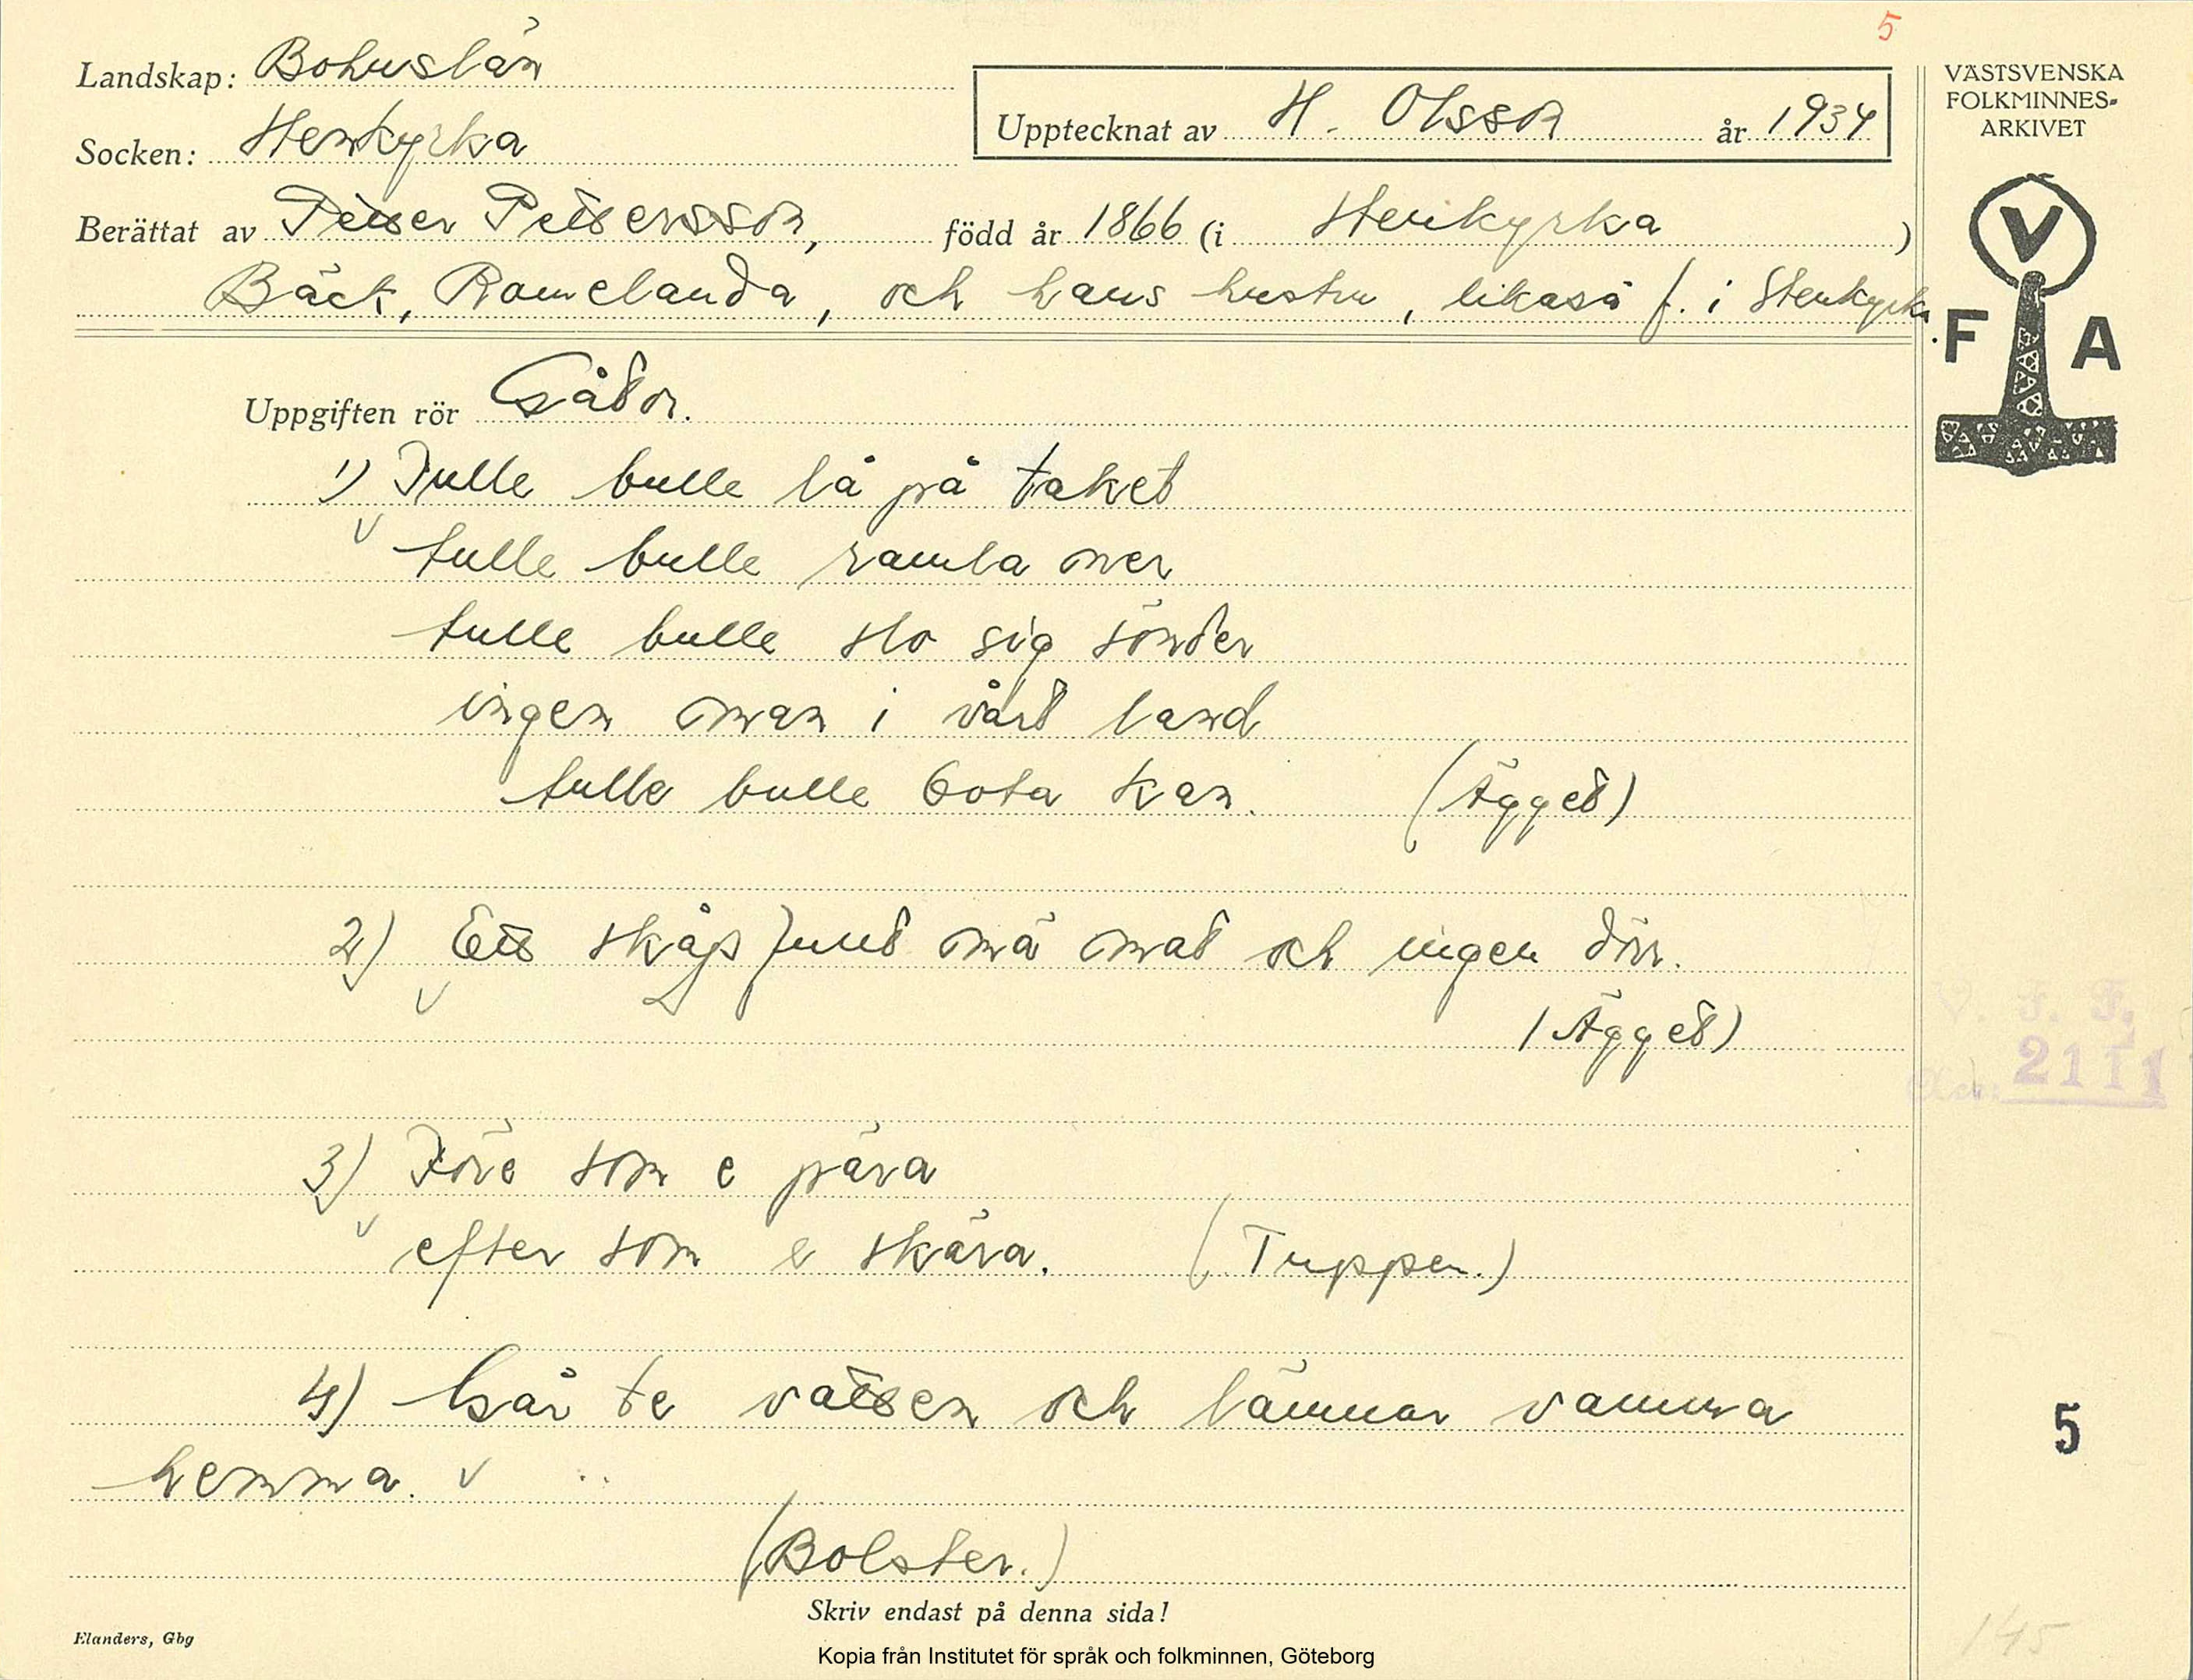 5
Landskap: Bohuslän
Socken: Stenkyrka
Upptecknat av H. Olsson år 1934
Berättat av Petter Pettersson, född år 1866 (i Stenkyrka )
Bäck, Romelanda, och hans hustru, likaså f. i Stenkyrka.
VÄSTSVENSKA
FOLKMINNES-
ARKIVET
V
F A
Uppgiften rör Gåtor.
1) Tulle bulle lå på taket
tulle bulle ramla ner
tulle bulle slo sig sönder
ingen man i vårt land
tulle bulle bota kan. (Ägget)
2) Ett skåp fullt mä mat och ingen dörr.
(Ägget)
V. F. F.
2111
3) Före som e pära
efter som e skära. (Tuppen.)
4) Går te vatten och lämnar vamma
hemma.
5
(Bolster.)
Skriv endast på denna sida!
Elanders, Gbg
145
Kopia från Institutet för språk och folkminnen, Göteborg